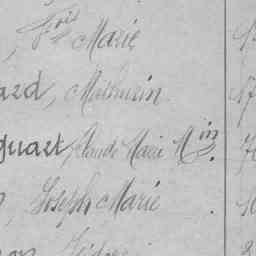 , Fois Marie
ard, Mathurin
guart, Claude Marie Min.
, Joseph Marie